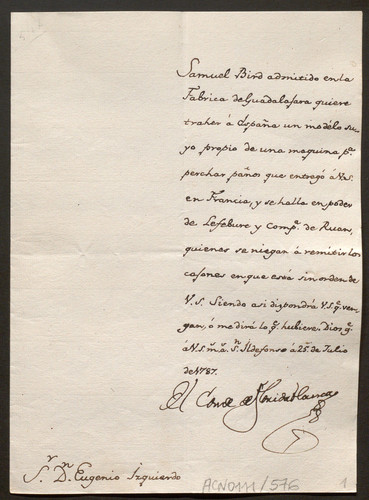 Samuel Bird admitido en la
Fabrica de Guadalaxara quiere
traher á España un modélo su-
yo propio de una maquina pª
perchar paños que entregó á V.S.
en Francia, y se halla en poder
de Lefebure y Compª de Ruan,
quienes se niegan á remitir los
caxones en que está sin orden de
V.S. Siendo asi dispondrá V.S. q.e ven-
gan, ó me dirá lo q.e hubiere. Dios g.e
á V.S. m.s a.s S.n Ildefonso á 25 de Julio
de 1787.
El Conde de Floridablanca
S.r D.n Eugenio Izquierdo
ACN0111/576
1